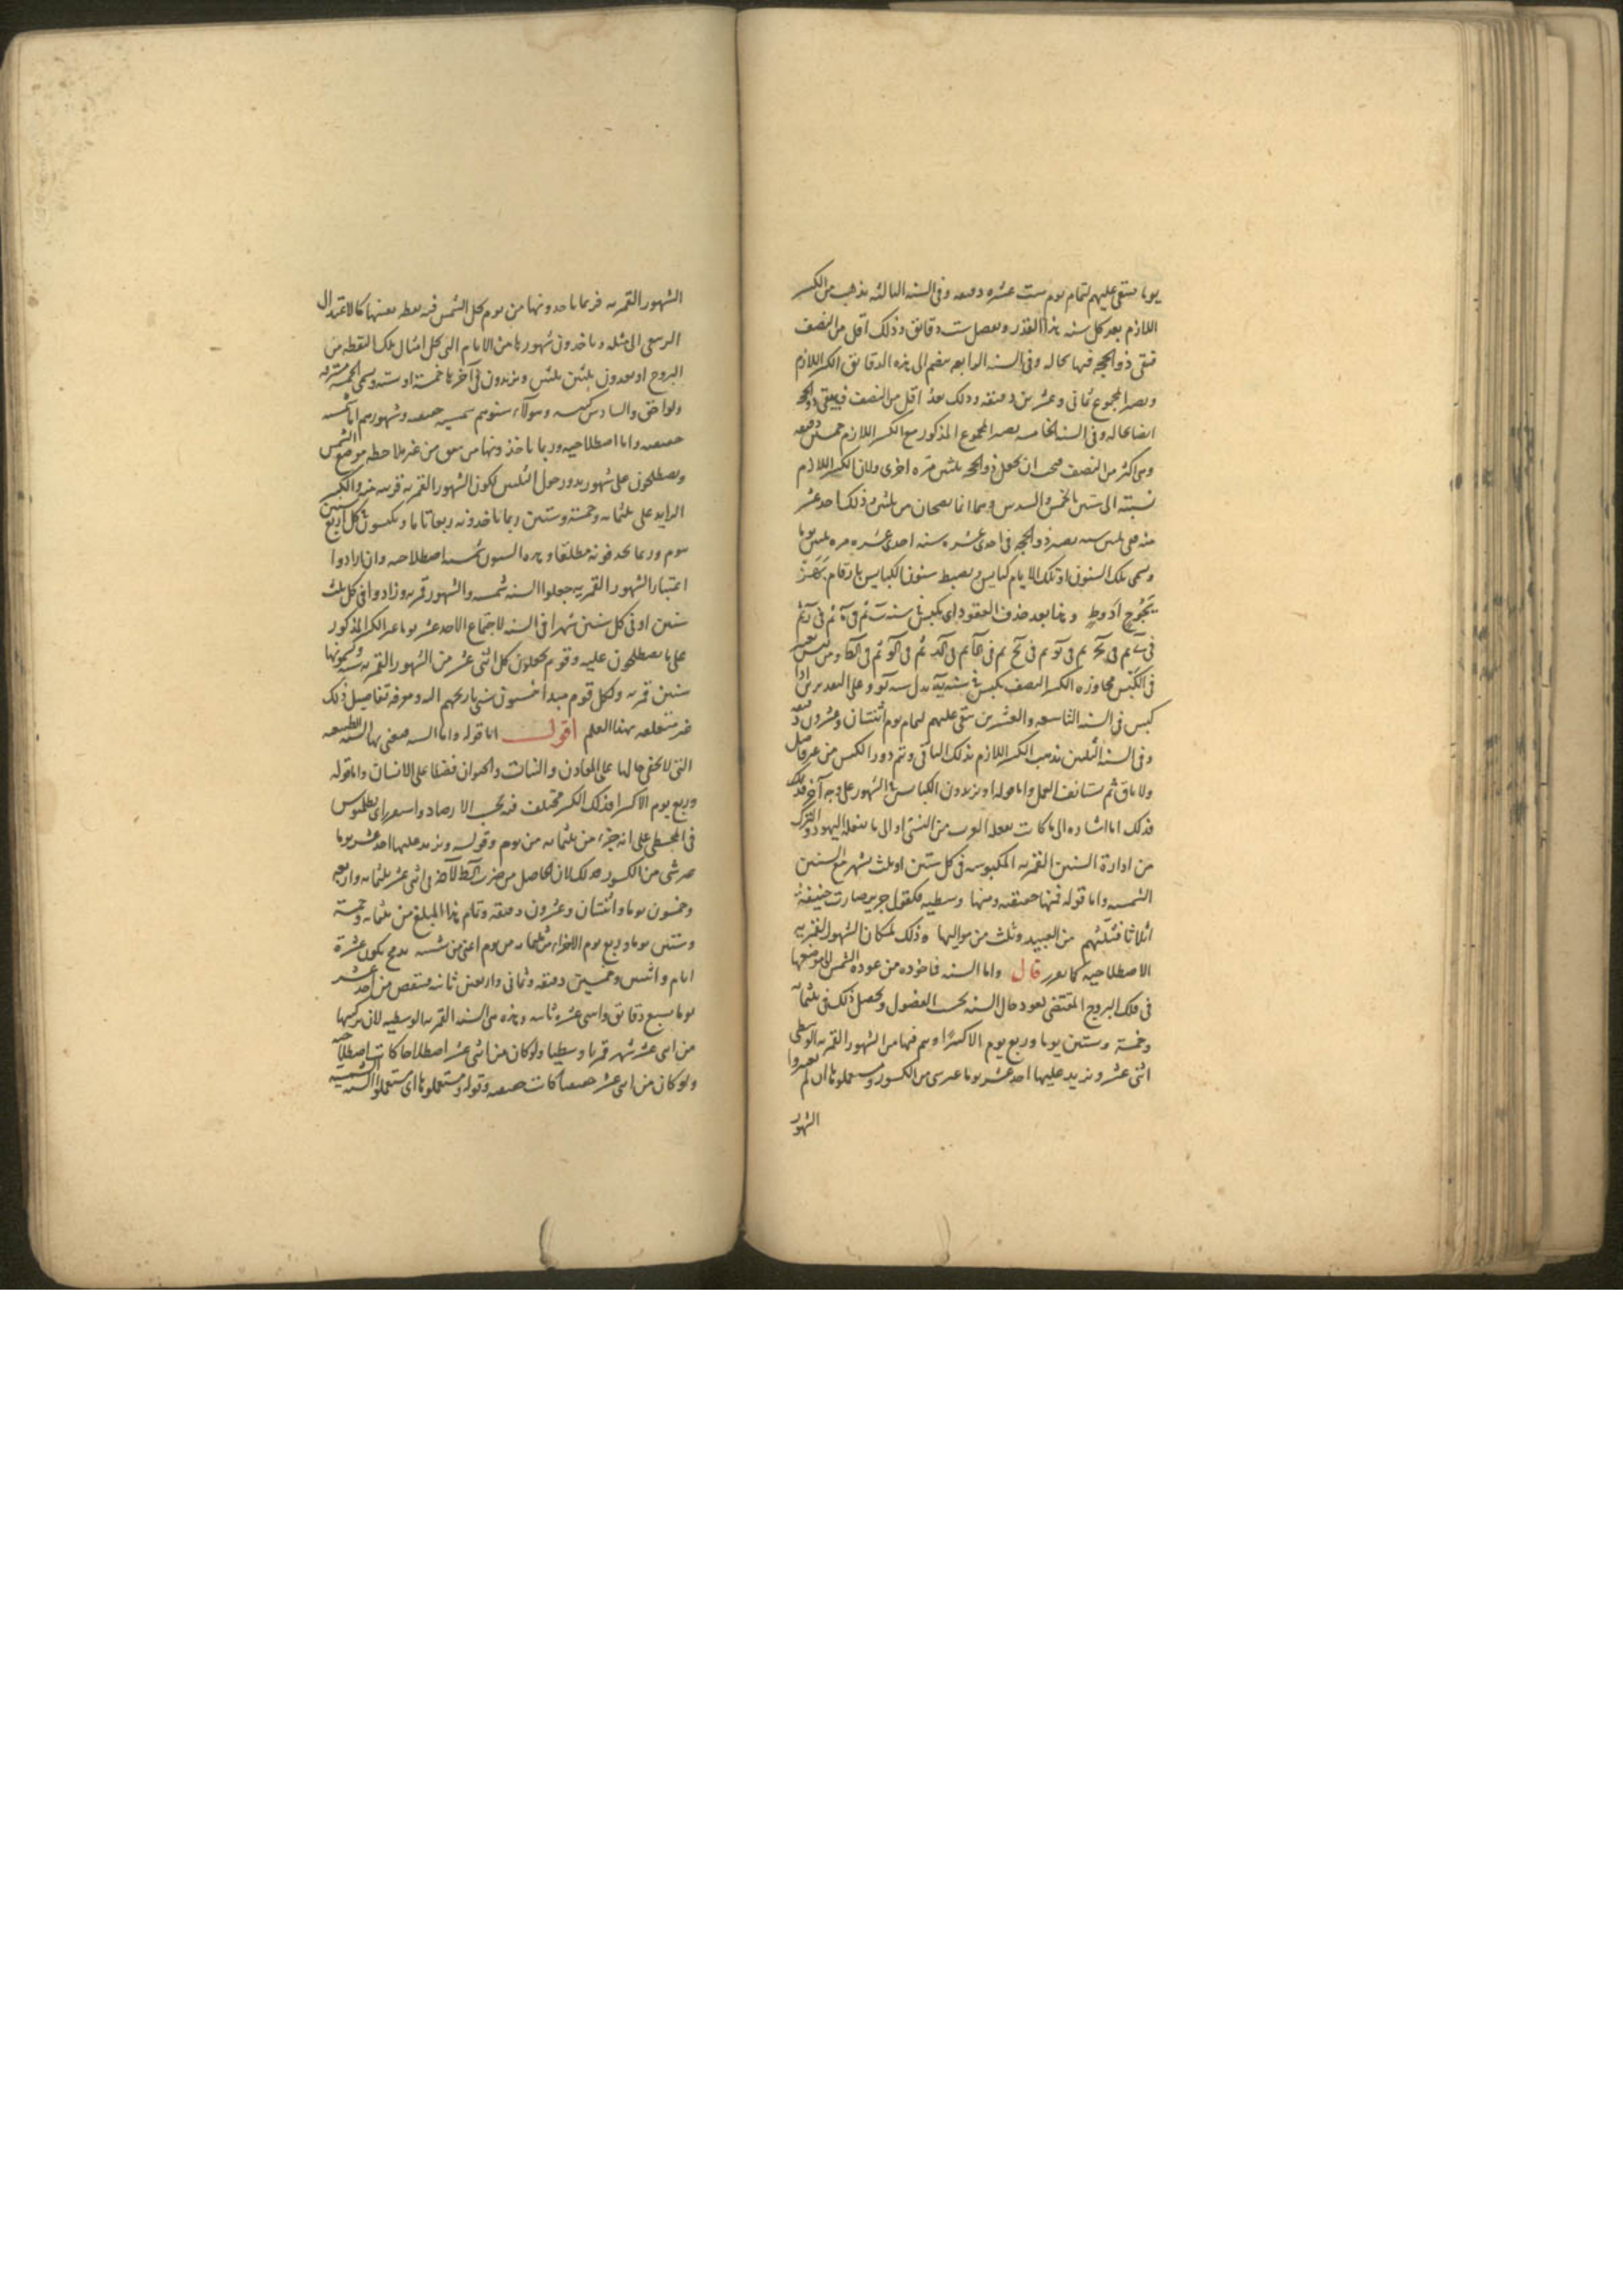 يوما فيبقى عليهم لتمام يوم ست عشره دقيقه وفى السنه الثالثه يذهب من الكسر
اللازم بعد كل سنه هذا القدر ويفضل ست دقائق وذلك اقل من النصف
فيبقى ذو الحجه فيها بحاله وفى السنه الرابعه ينضم الى هذه الدقائق الكسر اللازم
ويصير المجموع ثمانى وعشرين دقيقه وذلك بعد اقل من النصف فيبقى ذو الحجه
ايضا بحاله وفى السنه الخامسه يصير المجموع المذكور مع الكسر اللازم خمسين دقيقه
وهى اكثر من النصف فيجب ان يجعل ذو الحجه ثلثين مره اخرى ولان الكسر اللازم
نسبته الى ستين بالخمس والسدس وهما انما يصحان من ثلثين وذلك احد عشر
منه ففى ثلثين سنه يصير ذو الحجه فى احدى عشره سنه احدى عشره مره ثلثين يوما
ويسمى تلك السنون او تلك الايام كبايس ويضبط سنون الكبايس بارقام
وفيما بعد حذف العقود اى يكبس فى سنه
فى الكبس مجاوزه الكسر النصف يكبس فى سنه يه بدل سنه يو وعلى التقديرين اذا
كبس فى السنه التاسعه والعشرين يبقى عليهم لتمام يوم اثنتان وعشرون دقيقه
وفى السنه الثلثين يذهب الكسر اللازم بذلك الباقى ويتم دور الكبس من غير فاضل
ولا باق ثم يستانف العمل واما قوله او يزيدون الكبايس فى الشهور على وجه آخر فذلك
فذلك اما اشاره الى ما كانت يفعله العرب من النسئ او الى ما يفعله اليهود والترك
من ادارة السنين القمريه المكبوسه فى كل سنتين او ثلث بشهر مع السنين
الشمسيه واما قوله فمنها حقيقيه ومنها وسطيه فكقول جرير صارت حنيفة
اثلاثا فثلثهم من العبيد وثلث من مواليها وذلك لمكان الشهور القمريه
الاصطلاحيه كما تقرر قال واما السنه فماخوذه من عودة الشمس الى موضعها
فى فلك البروج المقتضى لعود حال السنه بحسب الفصول ويحصل ذلك فى ثلثمائه
وخمسة وستين يوما وربع يوم الا كسرًا ويتم فيها من الشهور القمريه الوسطى
اثنى عشر ويزيد عليها احد عشر يوما غير شى من الكسور ويستعملونها ان لم يعتبروا
الشهور
الشهور القمريه فربما ياخذونها من يوم يحل الشمس فيه نقطه بعينها كالاعتدال
الربيعى الى مثله وياخذون شهورها من الايام التى تحل امثال تلك النقطه من
البروج او يعدون ثلثين ثلثين ويزيدون فى آخرها خمسة او ستة ويسمى الخمسه مسترقه
ولواحق والسادس كبيسه وهولآء سنوهم شمسيه حقيقيه وشهورهم اما شمسيه
حقيقيه واما اصطلاحيه وربما ياخذونها من متفق من غير ملاحظه موضع الشمس
ويصطلحون على شهور يدور حول الثلثين لكون الشهور القمريه قريبه منه والكسر
الزايد على ثلثمائه وخمسة وستين ربما ياخذونه ربعا تاما ويكبسون فى كل اربع سنين
بيوم وربما يحذفونه مطلقا وهذه السنون شمسيه اصطلاحيه وان ارادوا
اعتبار الشهور القمريه جعلوا السنه شمسيه والشهور قمريه وزادوا فى كل ثلث
سنين او فى كل سنتين شهرا فى السنه لاجتماع الاحد عشر يوما غير الكسر المذكور
على ما يصطلحون عليه وقوم يجعلون كل اثنى عشر من الشهور القمريه سنه ويسمونها
سنين قمريه ولكل قوم مبدا ينسبون سنى تاريخهم اليه ومعرفه تفاصيل ذلك
غير متعلقه بهذا العلم اقول اما قوله واما السنه فيعنى بها السنه الطبيعيه
التى لا يخفى حالها على المعادن والنبات والحيوان فضلا على الانسان واما قوله
وربع يوم الا كسرا فذلك الكسر مختلف فيه بحسب الارصاد واستقر راى بطلميوس
فى المجسطى على انه جزء من ثلثمائه من يوم وقوله ويزيد عليها احد عشر يوما
غير شى من الكسور فذلك لان الحاصل من ضرب فى اثنى عشر ثلثمائه واربعه
وخمسون يوما واثنتان وعشرون دقيقه وتمام هذا المبلغ من ثلثمائه وخمسة
وستين يوما وربع يوم الا جزءا من ثلثمائه من يوم يكون عشرة
ايام واثنتين وخمسين دقيقه وثمانى واربعين ثانيه فينقص من احد عشر
يوما سبع دقائق واثنتى عشره ثانيه وهذه هى السنه القمريه الوسطيه لان تركيبها
من اثنى عشر شهر قمريا وسطيا ولو كان من اثنى عشر اصطلاحيا كانت اصطلاحيه
ولو كان من اثنى عشر حقيقيا كانت حقيقيه وقوله ويستعملونها اى يستعملون السنه الشمسيه